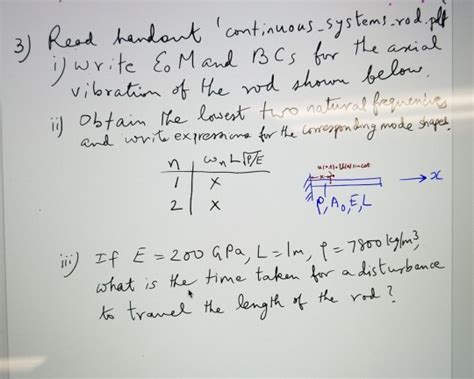 3) Read handout 'continuous_systems_rod.pdf
i) Write EoM and BCs for the axial
vibration of the rod shown below.
ii) Obtain the lowest two natural frequencies
and write expressions for the corresponding mode shapes.
n ωn L √ρ/E
1 x
2 x
x
→x
ρ, A0, E, L
iii) If E = 200 GPa, L = 1m, ρ = 7800 kg/m3,
what is the time taken for a disturbance
to travel the length of the rod?